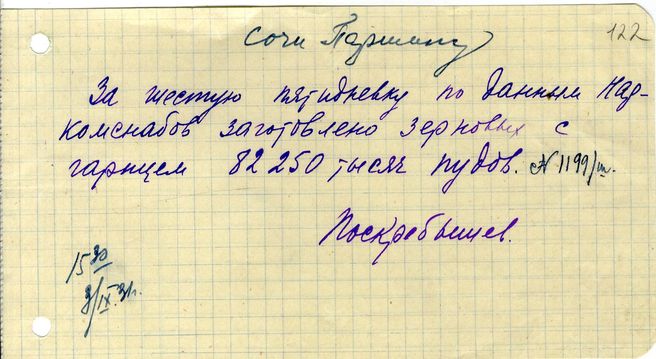 122
Сочи Паршину
За шестую пятидневку по данным Нар-
комснабов заготовлено зерновых с
гарнцем 82 250 тысяч пудов. № 1199/ш.
Поскребышев.
15 30
3/IX.31г.